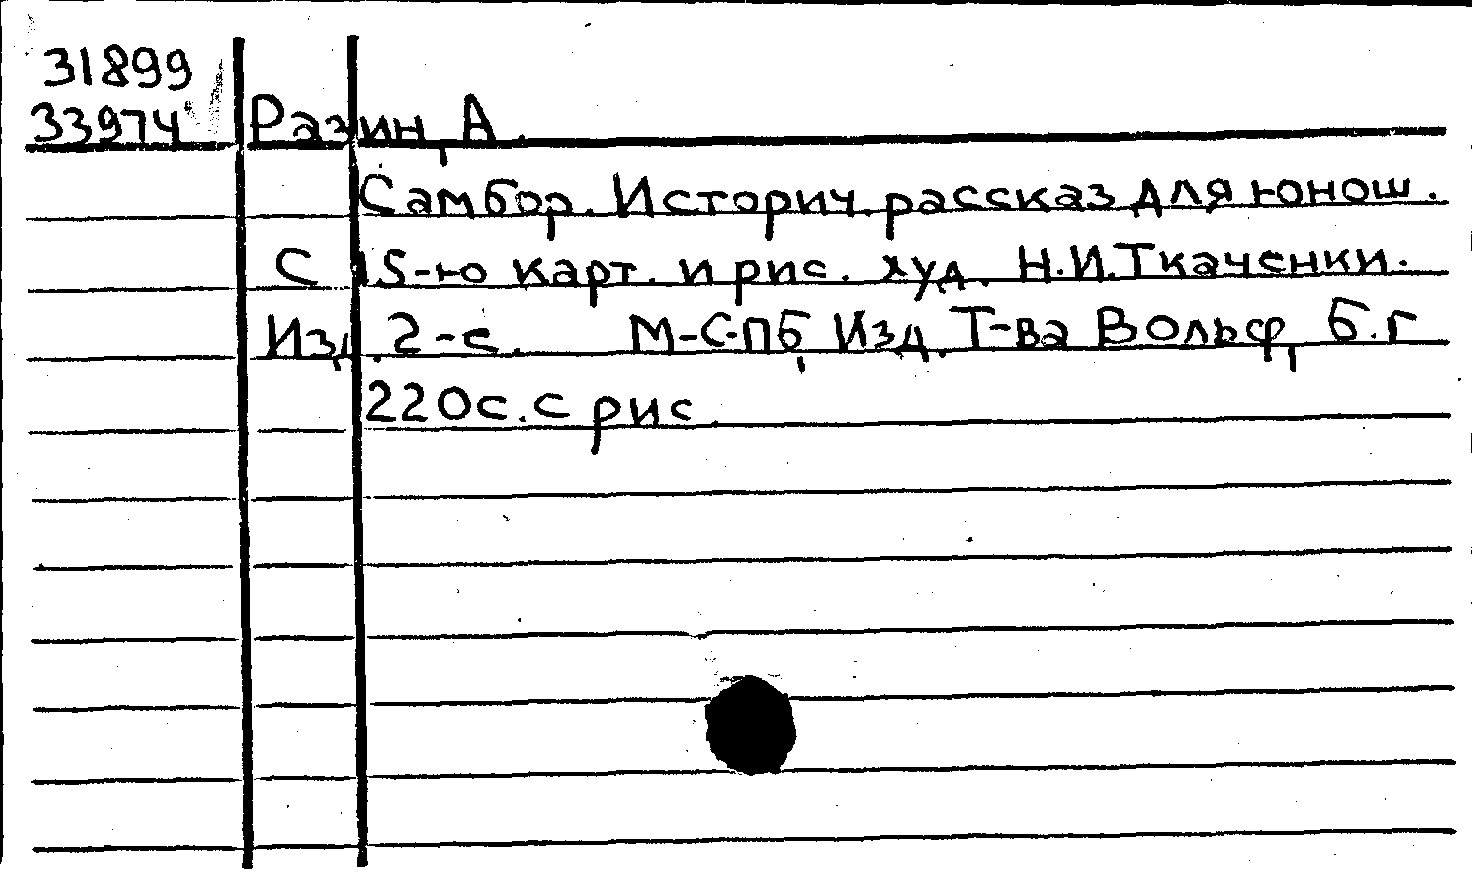 31899
33974 Разин, А.
Самбор. Историч. рассказ для юнош.
С 15-ю карт. и рис. худ. Н.И.Ткаченки.
Изд. 2-е. М-С-Пб, Изд. Т-ва Вольф, б.г
220с. с рис.